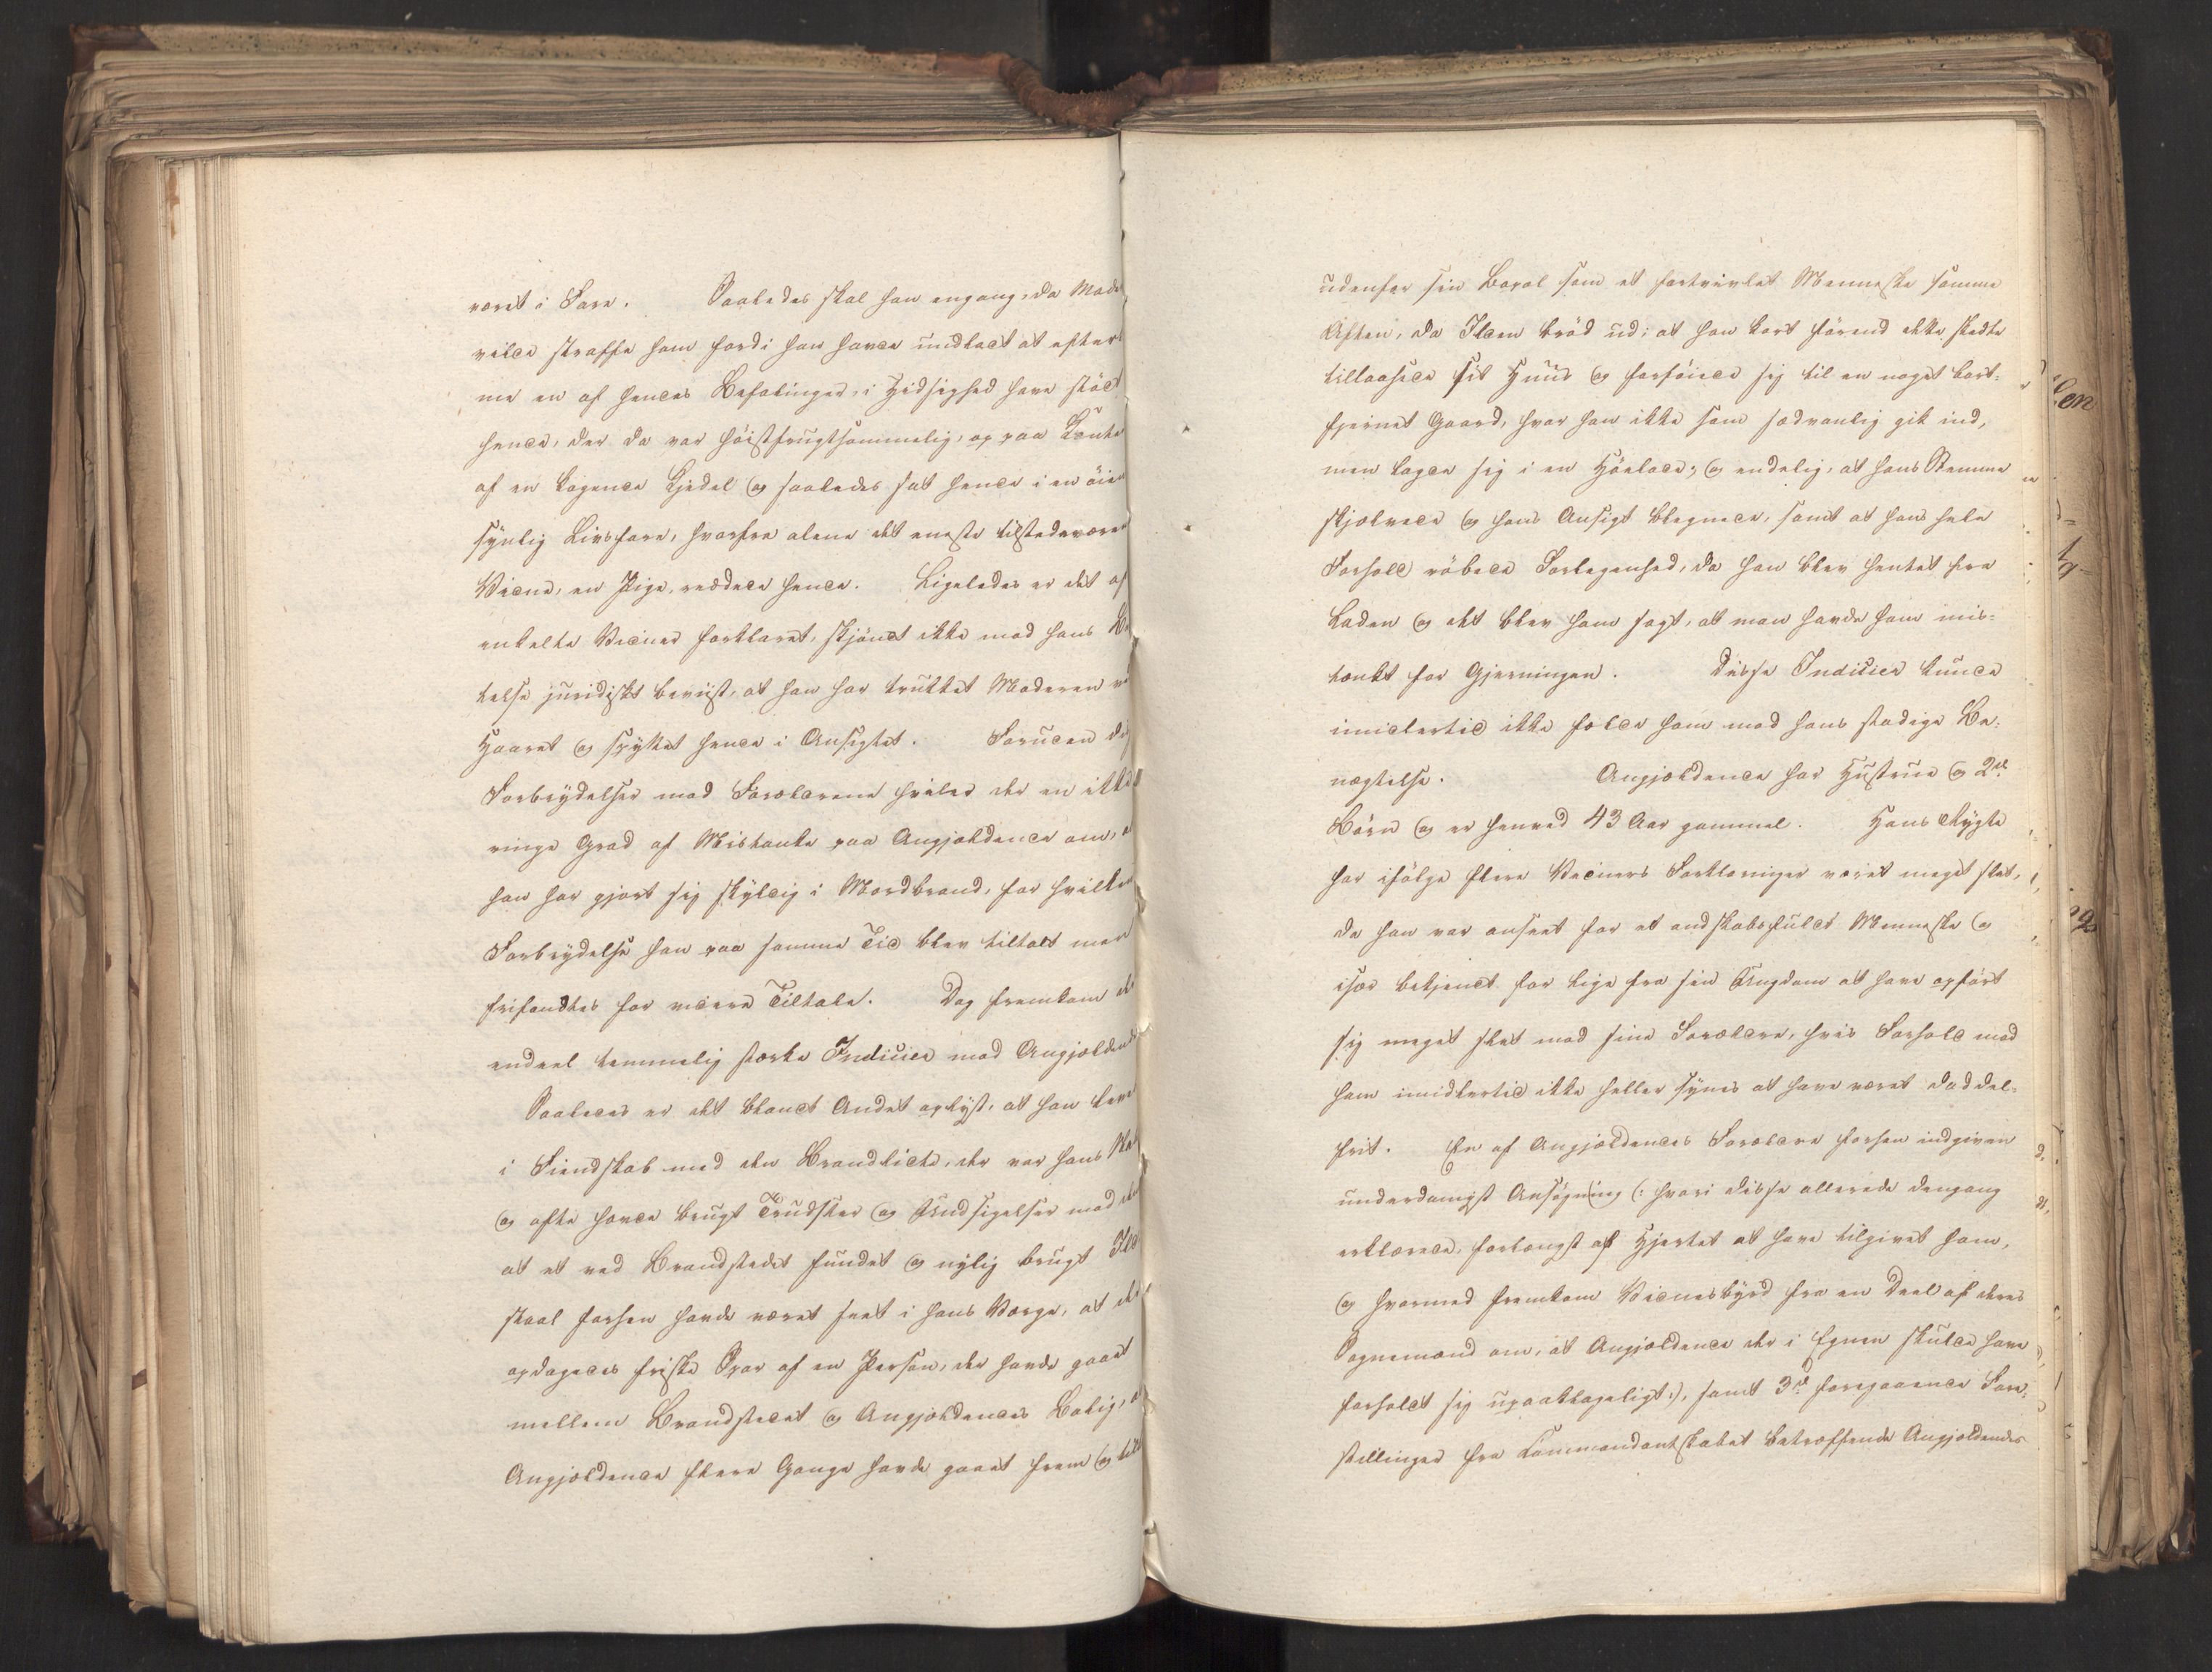 været i Fare. Saaledes skal han engang, da Mode
vilde straffe ham fordi han havde undladt at efterk
me en af hendes Befalinger, i Hidsighed have stødt
hende, der da var høistfrugtsommelig, op paa Kanten
af en kogende Kjedel og saaledes sat hende i en øien
synlig Livsfare, hvorfra alene det eneste tilstedeværen
Vidne, en Pige, reddede hende. Ligeledes er det af
enkelte Vidner forklaret, skjøndt ikke mod hans Be
telse juridiskt beviist, at han har trukket Moderen ved
Haaret og spyttet hende i Ansigtet. Foruden dis
Forbrydelser mod Forældrene hviler der en ikke
ringe Grad af Mistanke paa Angjældende om, a
han har gjort sig skyldig i Mordbrand, for hvilken
Forbrydelse han paa samme Tid blev tiltalt men
frifandtes for videre Tiltale. Dog fremkom de
endeel temmelig stærke Indicier mod Angjældende
Saaledes er det blandt Andet oplyst, at han leve
i Fiendskab med den Brandlidte, der var hans Na
og ofte havde brugt Trudsler og Undsigelser mod den
at et ved Brandstedet fundet og nylig brugt Ild
staal forhen havde været seet i hans Værge, at de
opdagedes friske Spor af en Person, der havde gaaet
mellem Brandstedet og Angjældendes Bolig, a
Angjældende flere Gange havde gaaet frem og tilb
udenfor sin Bopæl som et fortvivlet Menneske samme
Aften, da Ilden brød ud; at han kort førend dette skedte
tillaasede sit Huus og forføiede sig til en noget bort-
fjernet Gaard, hvor han ikke som sædvanlig gik ind,
men lagde sig i en Høelade; og endelig, at hans Stemme
skjælvede og hans Ansigt blegnede, samt at hans hele
Forhold røbede Forlegenhed, da han blev hentet fra
Laden og det blev ham sagt, at man havde ham mis-
tænkt for Gjerningen. Disse Indicier kunde
imidlertid ikke fælde ham mod hans stadige Be-
nægtelse. Angjældende har Hustrue og 2de
Børn og er henved 43 Aar gammel. Hans Rygte
har ifølge flere Vidners Forklaringer været meget slet,
da han var anseet for et ondskabsfuldt Menneske og
især bekjendt for lige fra sin Ungdom at have opført
sig meget slet mod sine Forældre, hvis Forhold mod
ham imidlertid ikke heller synes at have været daddel-
frit. En af Angjældendes Forældre forhen indgiven
underdanigst Ansøgning (: hvori disse allerede dengang
erklærede, forlængst af Hjertet at have tilgivet ham,
og hvormed fremkom Vidnesbyrd fra en Deel af deres
Sognemænd om, at Angjældende der i Egnen skulde have
forholdt sig upaaklageligt:), samt 3de foregaaende Fore-
stillinger fra Commandantskabet betræffende Angjældendes